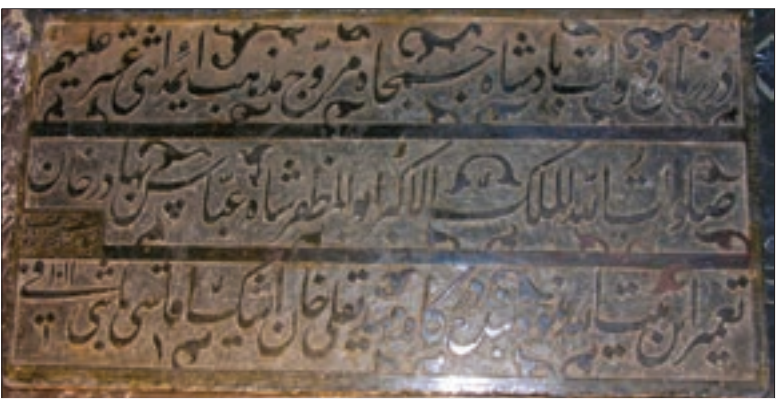 در زمان دولت پادشاه جمجاه مروج مذهب ائمه اثنی عشر علیهم
صلوات الله الملک الاکبر ابوالمظفر شاه عباس بهادر خان
تعمیر این بیت الله نمود بنده درگاه مرید تقلی خان ایشیک اقاسی باشی